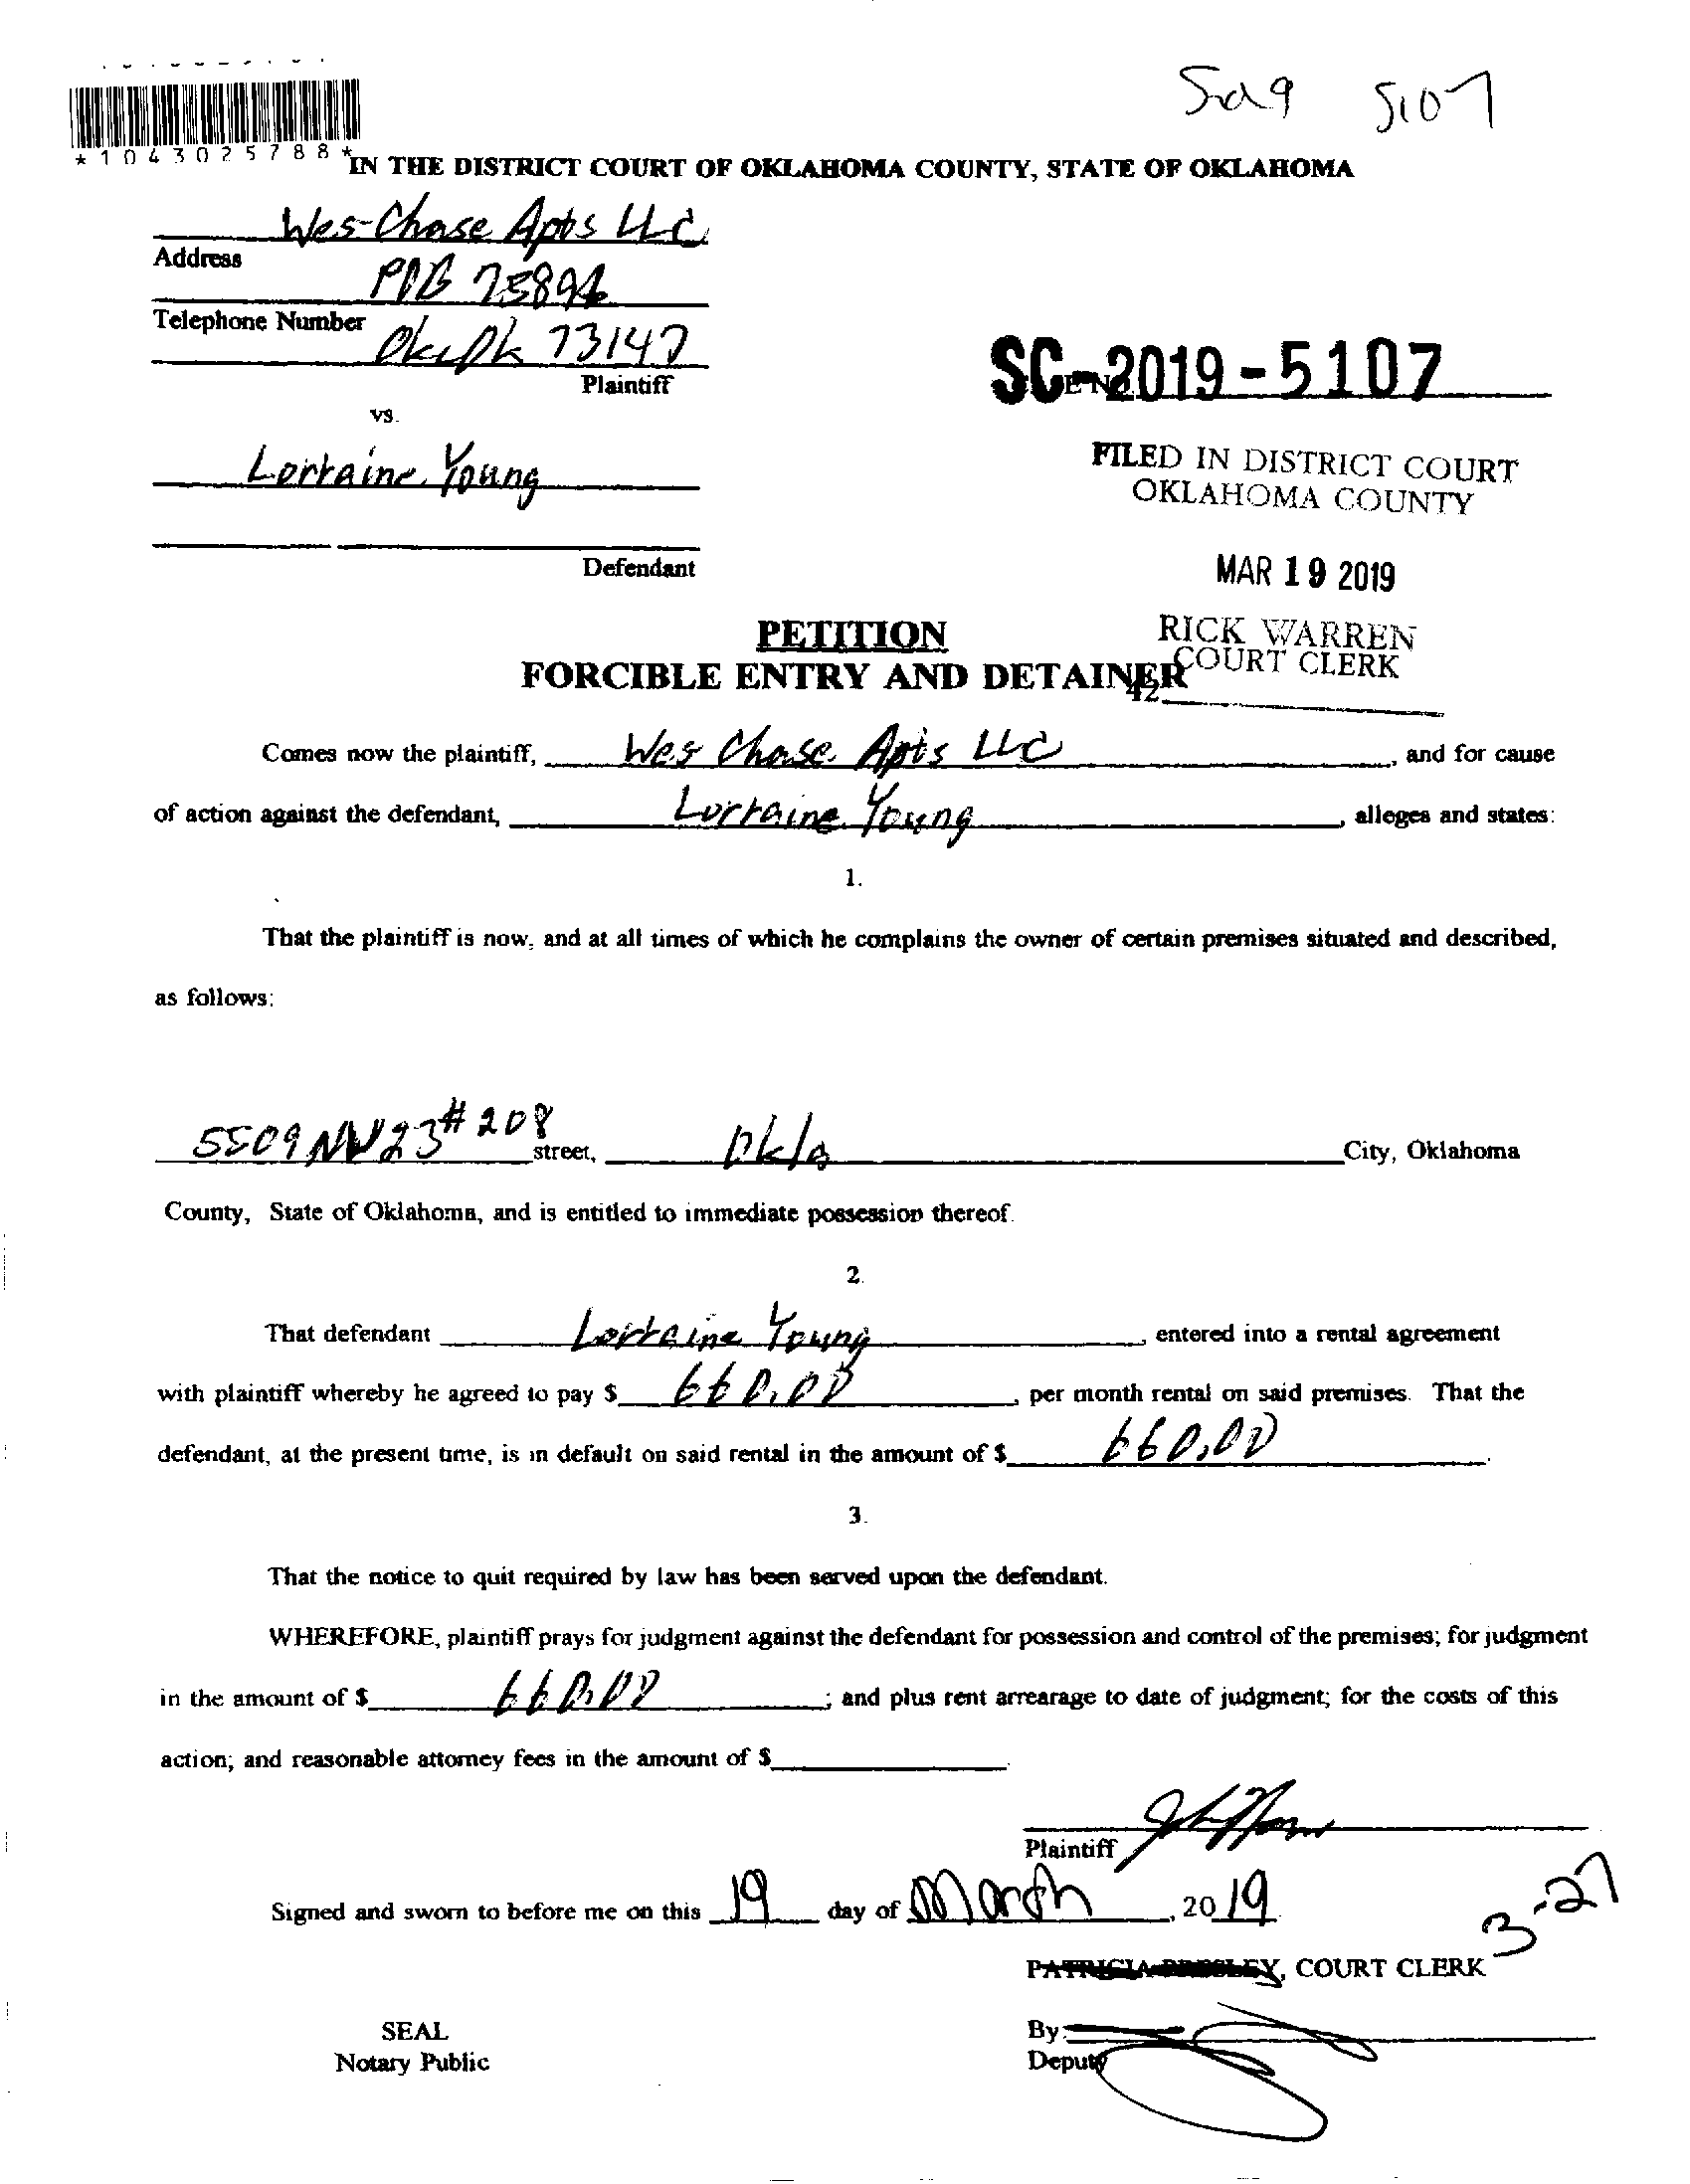 *1043025788*
IN THE DISTRICT COURT OF OKLAHOMA COUNTY, STATE OF OKLAHOMA
Wes-Chase Apts LLC
Address
POB 75894
Telephone Number
73147
Plaintiff
SC-2019-5107
vs.
Lorraine Young
FILED IN DISTRICT COURT
OKLAHOMA COUNTY
Defendant
MAR 19 2019
PETITION
RICK WARREN
COURT CLERK
FORCIBLE ENTRY AND DETAINER
42
Comes now the plaintiff, Wes Chase Apts LLC, and for cause
of action against the defendant, Lorraine Young, alleges and states:
1.
That the plaintiff is now, and at all times of which he complains the owner of certain premises situated and described,
as follows:
5509 NW 23 #208 street, Okla City, Oklahoma
County, State of Oklahoma, and is entitled to immediate possession thereof.
2.
That defendant Lorraine Young, entered into a rental agreement
with plaintiff whereby he agreed to pay $ 660.00, per month rental on said premises. That the
defendant, at the present time, is in default on said rental in the amount of $ 660.00.
3.
That the notice to quit required by law has been served upon the defendant.
WHEREFORE, plaintiff prays for judgment against the defendant for possession and control of the premises; for judgment
in the amount of $ 660.00; and plus rent arrearage to date of judgment; for the costs of this
action; and reasonable attorney fees in the amount of $
Plaintiff
Signed and sworn to before me on this 19 day of March, 2019
3-27
PATRICIA PRESLEY, COURT CLERK
SEAL
By:
Notary Public
Deputy